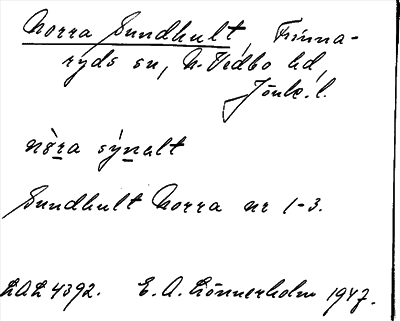 Norra Sundhult, Finna-
ryds sn, N. Vedbo hd,
Jönk. l.
nòra sýnalt
Sundhult Norra nr 1-3.
LAL 4392. E. A. Lönnerholm 1947.